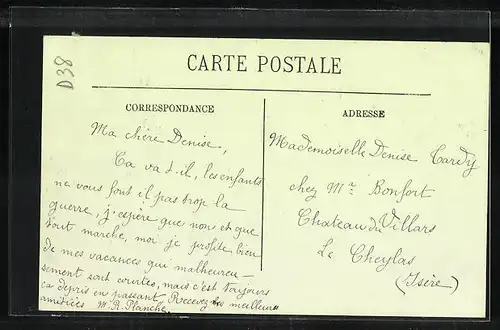 D38
CARTE POSTALE
CORRESPONDANCE
Ma chère Denise,
Ça va t-il, les enfants
ne vous font il pas trop la
guerre, j'espère que non et que
tout marche, moi je profite bien
de mes vacances qui malheureu-
sement sont courtes, mais c'est toujours
ça de pris en passant. Recevez les meilleurs
amitiées M. R. Planche
ADRESSE
Mademoiselle Denise Cardy
chez Mr Bonfort
Chateau du Villars
Le Cheylas
(Isère)